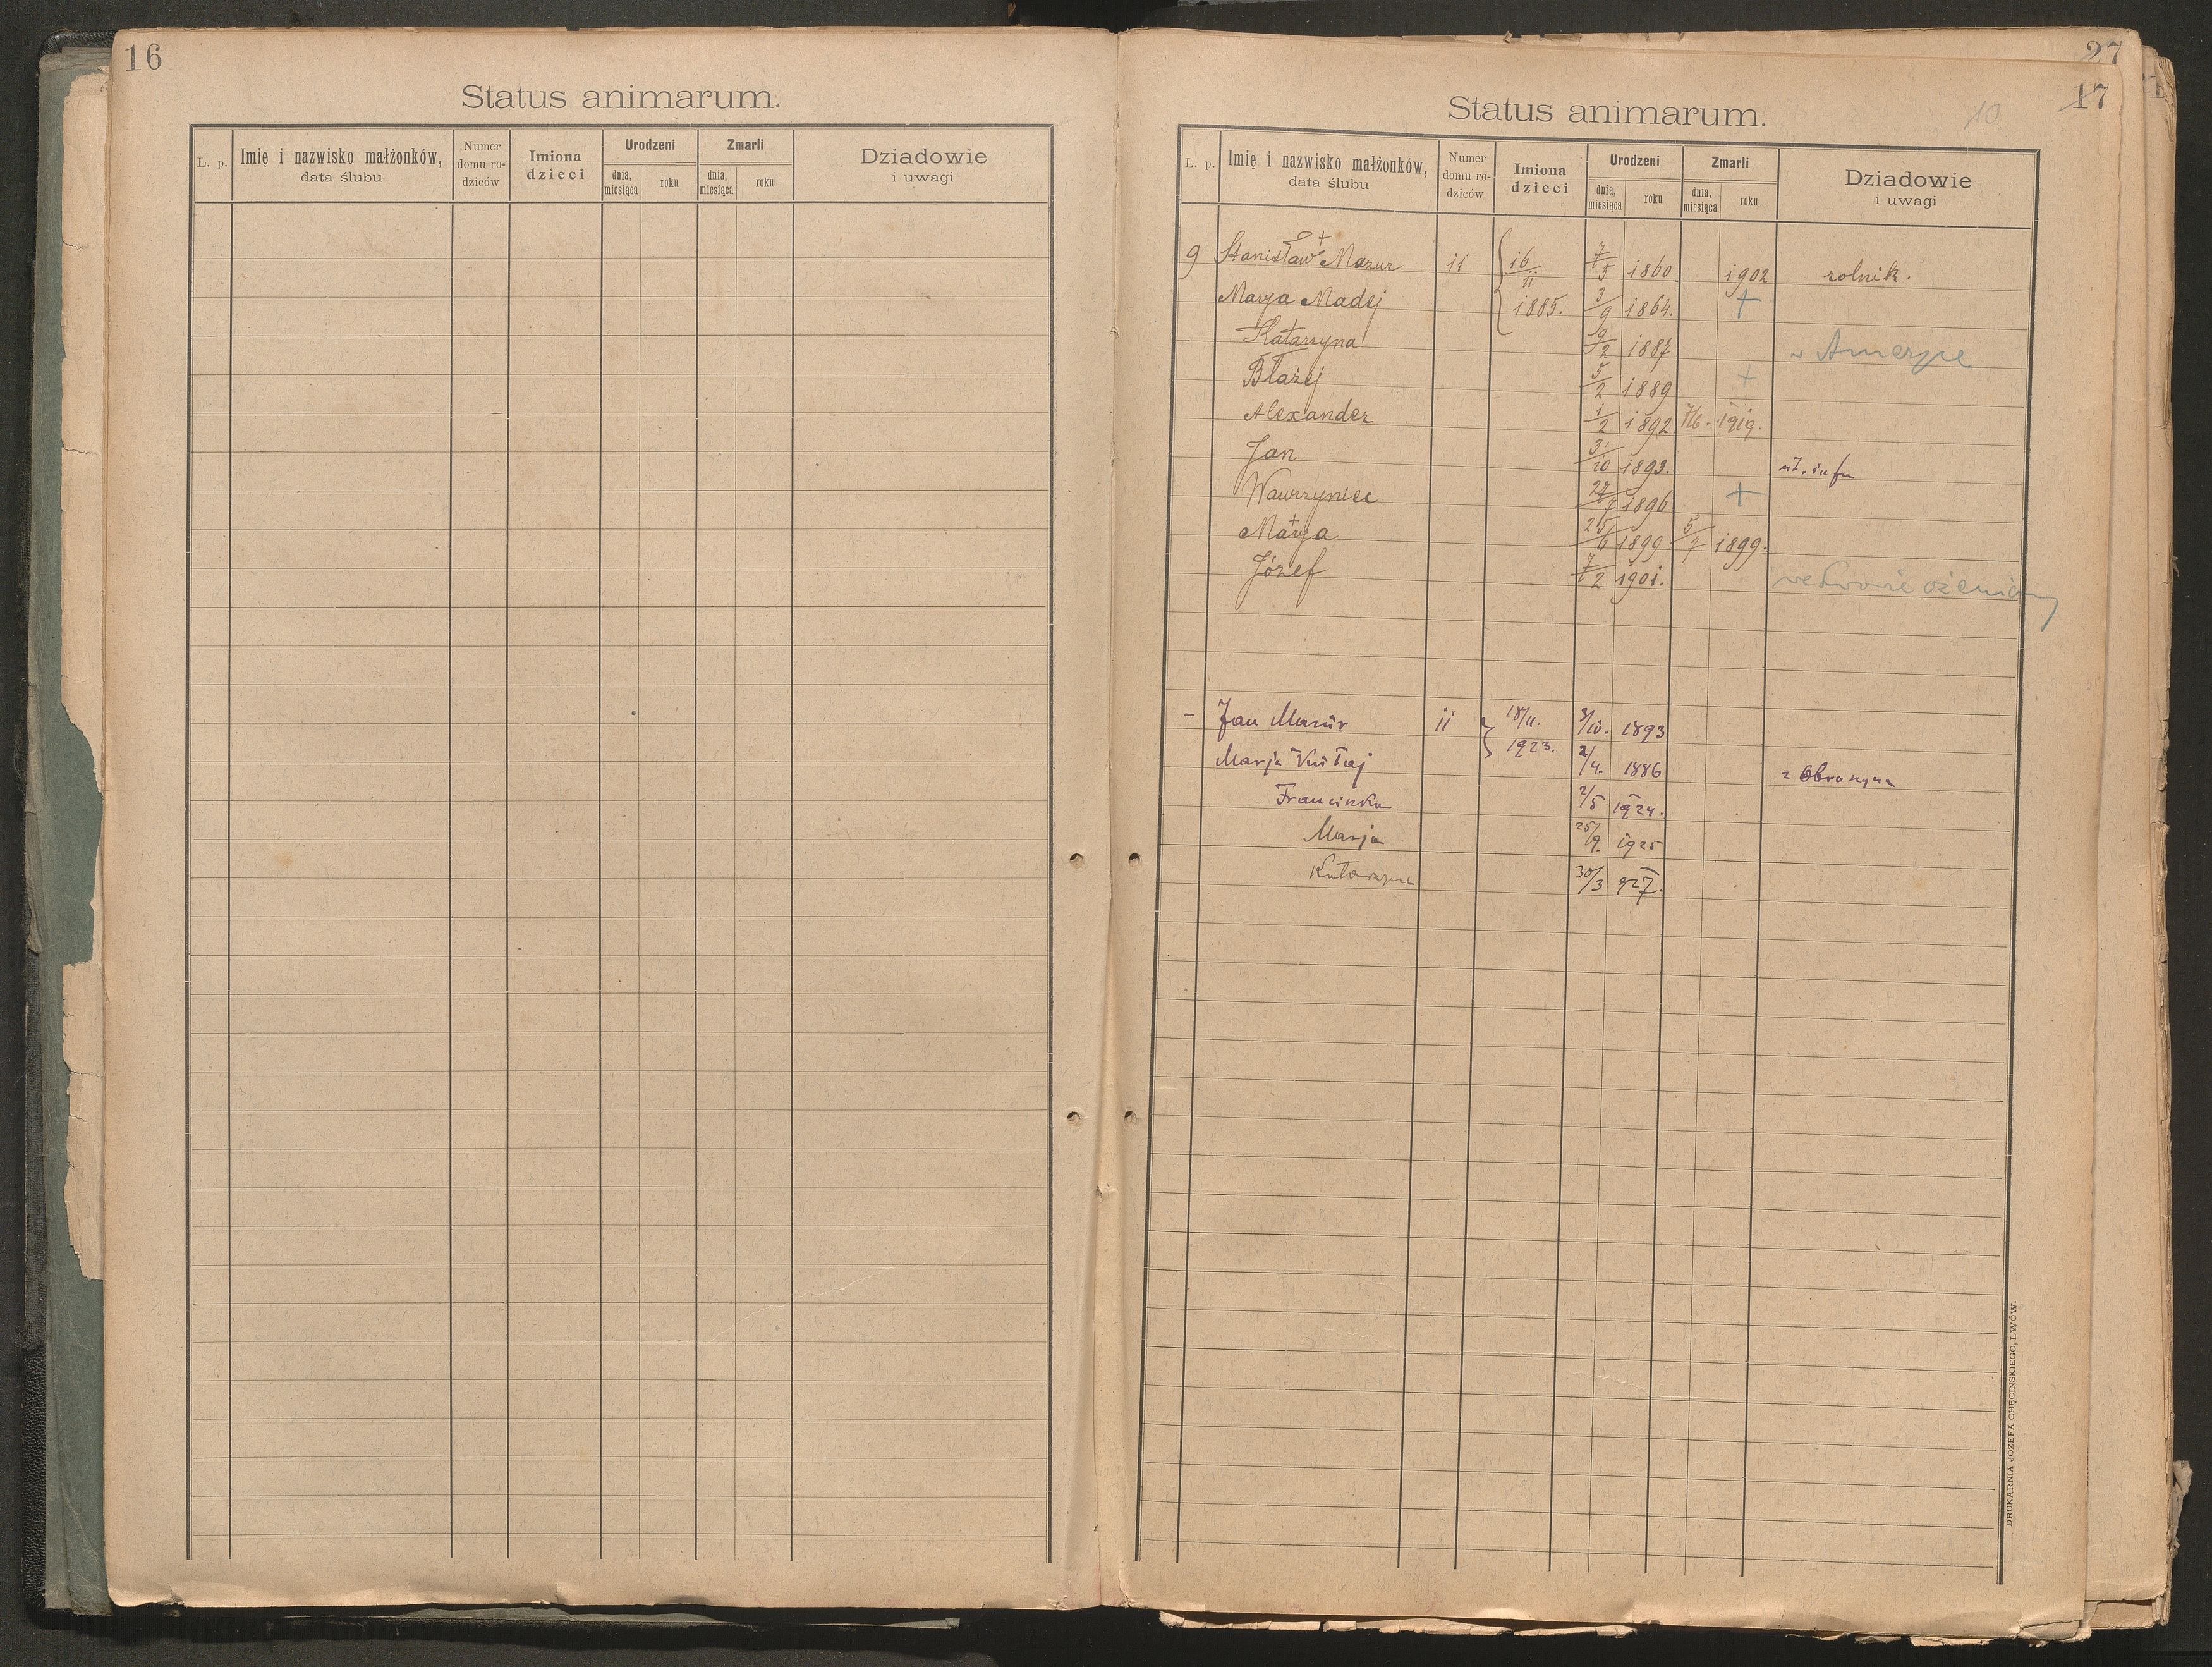 16
Status animarum.
L. p. | Imię i nazwisko małżonków, data ślubu | Numer domu rodziców | Imiona dzieci | Urodzeni dnia, miesiąca roku | Zmarli dnia, miesiąca roku | Dziadowie i uwagi
27
17
10
Status animarum.
L. p. | Imię i nazwisko małżonków, data ślubu | Numer domu rodziców | Imiona dzieci | Urodzeni dnia, miesiąca roku | Zmarli dnia, miesiąca roku | Dziadowie i uwagi
9 Stanisław + Mazur 11 16/11 7/5 1860 1902 rolnik.
Marya Madej 1885. 3/9 1864. +
Katarzyna 9/2 1887 w Ameryce
Błażej 5/2 1889 +
Alexander 1/2 1892 7/6 1919.
Jan 3/10 1893. ut. infra
Wawrzyniec 27/7 1896 +
Marya + 25/6 1899 5/7 1899.
Józef 7/2 1901. we Lwowie ożeniony
- Jan Mazur 11 18/11. 3/10. 1893
Marja 1923. 2/4. 1886 z Obroszyna
Franciszka 2/5 1924.
Marja 25/9. 1925
Katarzyna 30/3 927.
DRUKARNIA JÓZEFA CHĘCIŃSKIEGO, LWÓW.